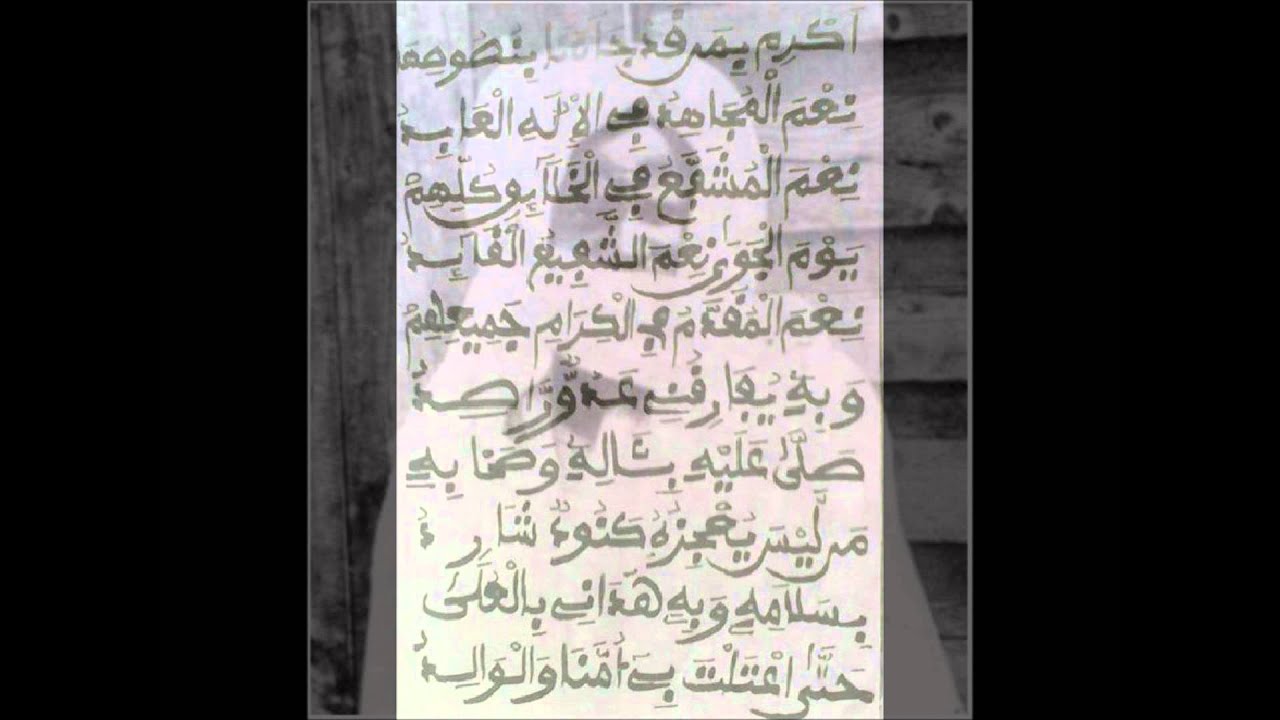 اَكْرِمْ بِمَن فَدْ جَاءَنَا
نِعْمَ الْمُجَاهِدُ فِي الْإِلَهِ الْعَابِدُ
نِعْمَ الْمُشَفَّعُ فِي الْخَلَآئِقِ كُلِّهِمْ
يَوْمَ الْجَوَى نِعْمَ الشَّفِيعُ الْقَائِدُ
نِعْمَ الْمُقَدَّمُ فِي الْكِرَامِ جَمِيعِهِمْ
وَبِهِ يُفَارِقُنِي عَدُوٌّ رَّاصِدُ
صَلَّى عَلَيْهِ بِئَالِهِ وَصَحَابِهِ
مَن لَّيْسَ يُعْجِزُهُ كَنُودٌ شَارِدُ
بِسَلَامِهِ وَبِهِ هَدَانِي بِالْعُلَى
حَتَّى اعْتَلَتْ بِيَ أُمُّنَا وَالْوَالِدُ